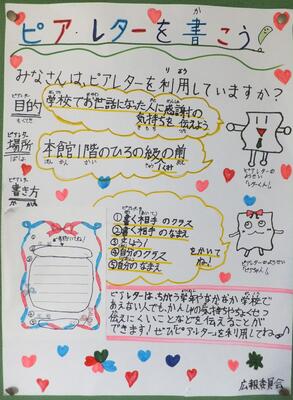 ピア・レターを書こう
みなさんは、ピアレターを利用していますか?
目的
学校でお世話になった人に感謝の
気持ちを伝えよう
場所
本館1階のひろの級の前
書き方
①書く相手のクラス
②書く相手のなまえ
④自分のクラス
⑤自分のなまえ
をかいてね!
ピアレターは、ちがう学年やなかなか学校で
あえない人でも、かんしゃの気持ちやちょくせつ
伝えにくいことなどを伝えることが
できます!ぜひピアレターを利用してね
広報委員会